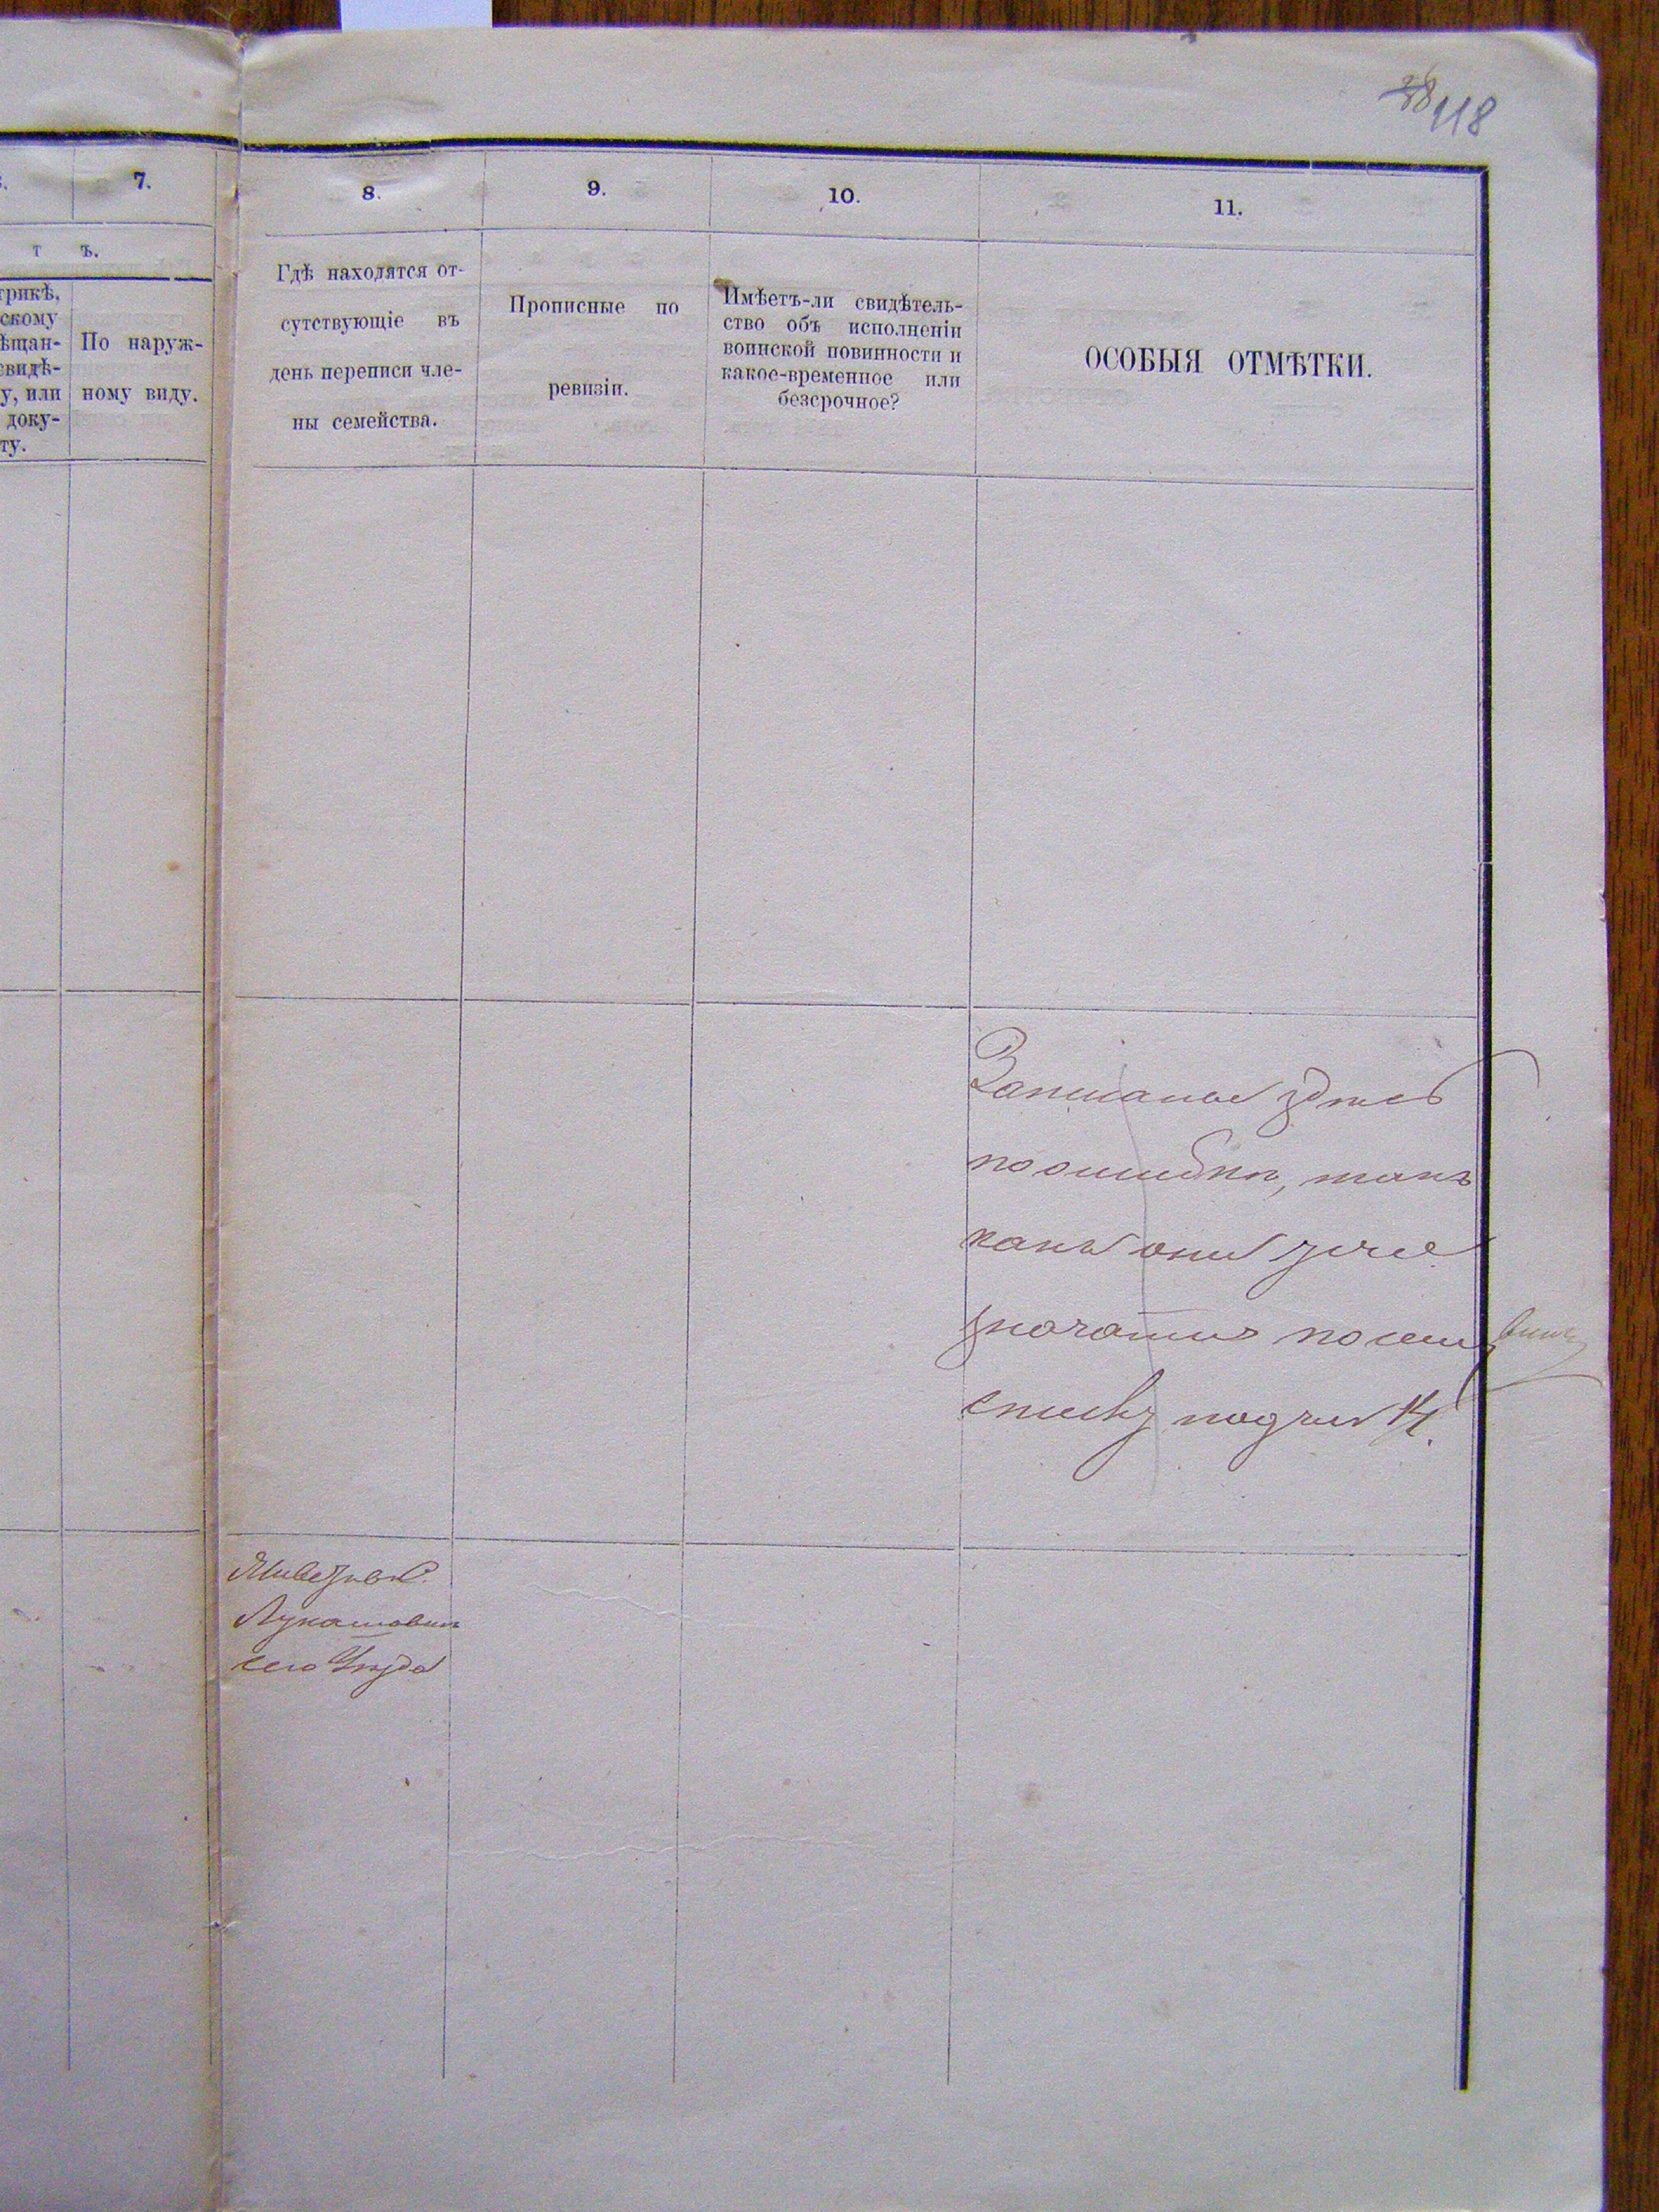 118
7.
8.
9.
10.
11.
т ъ.
трикѣ,
скому
ѣщан-
свидѣ-
у, или
доку-
ту.
По наруж-
ному виду.
Гдѣ находятся от-
сутствующіе въ
день переписи чле-
ны семейства.
Прописные по
ревизіи.
Имѣетъ-ли свидѣтель-
ство объ исполненіи
воинской повинности и
какое-временное или
безсрочное?
ОСОБЫЯ ОТМѢТКИ.
Записаны здѣсь
по ошибкѣ, такъ
какъ они уже
значатся по сему
списку подъ № 14.
Лукашовкѣ
сего Уѣзда